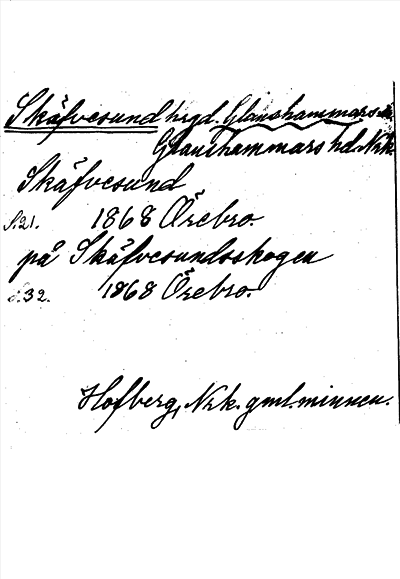 Skäfvesund hrgd. Glanshammars sn
Glanshammars hd. Nrk.
Skäfvesund
S.21. 1868 Örebro.
på Skäfvesundsskogen
S.32. 1868 Örebro.
Hofberg, Nrk. gml. minnen.